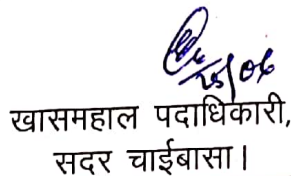 25/06
खासमहाल पदाधिकारी,
सदर चाईबासा।